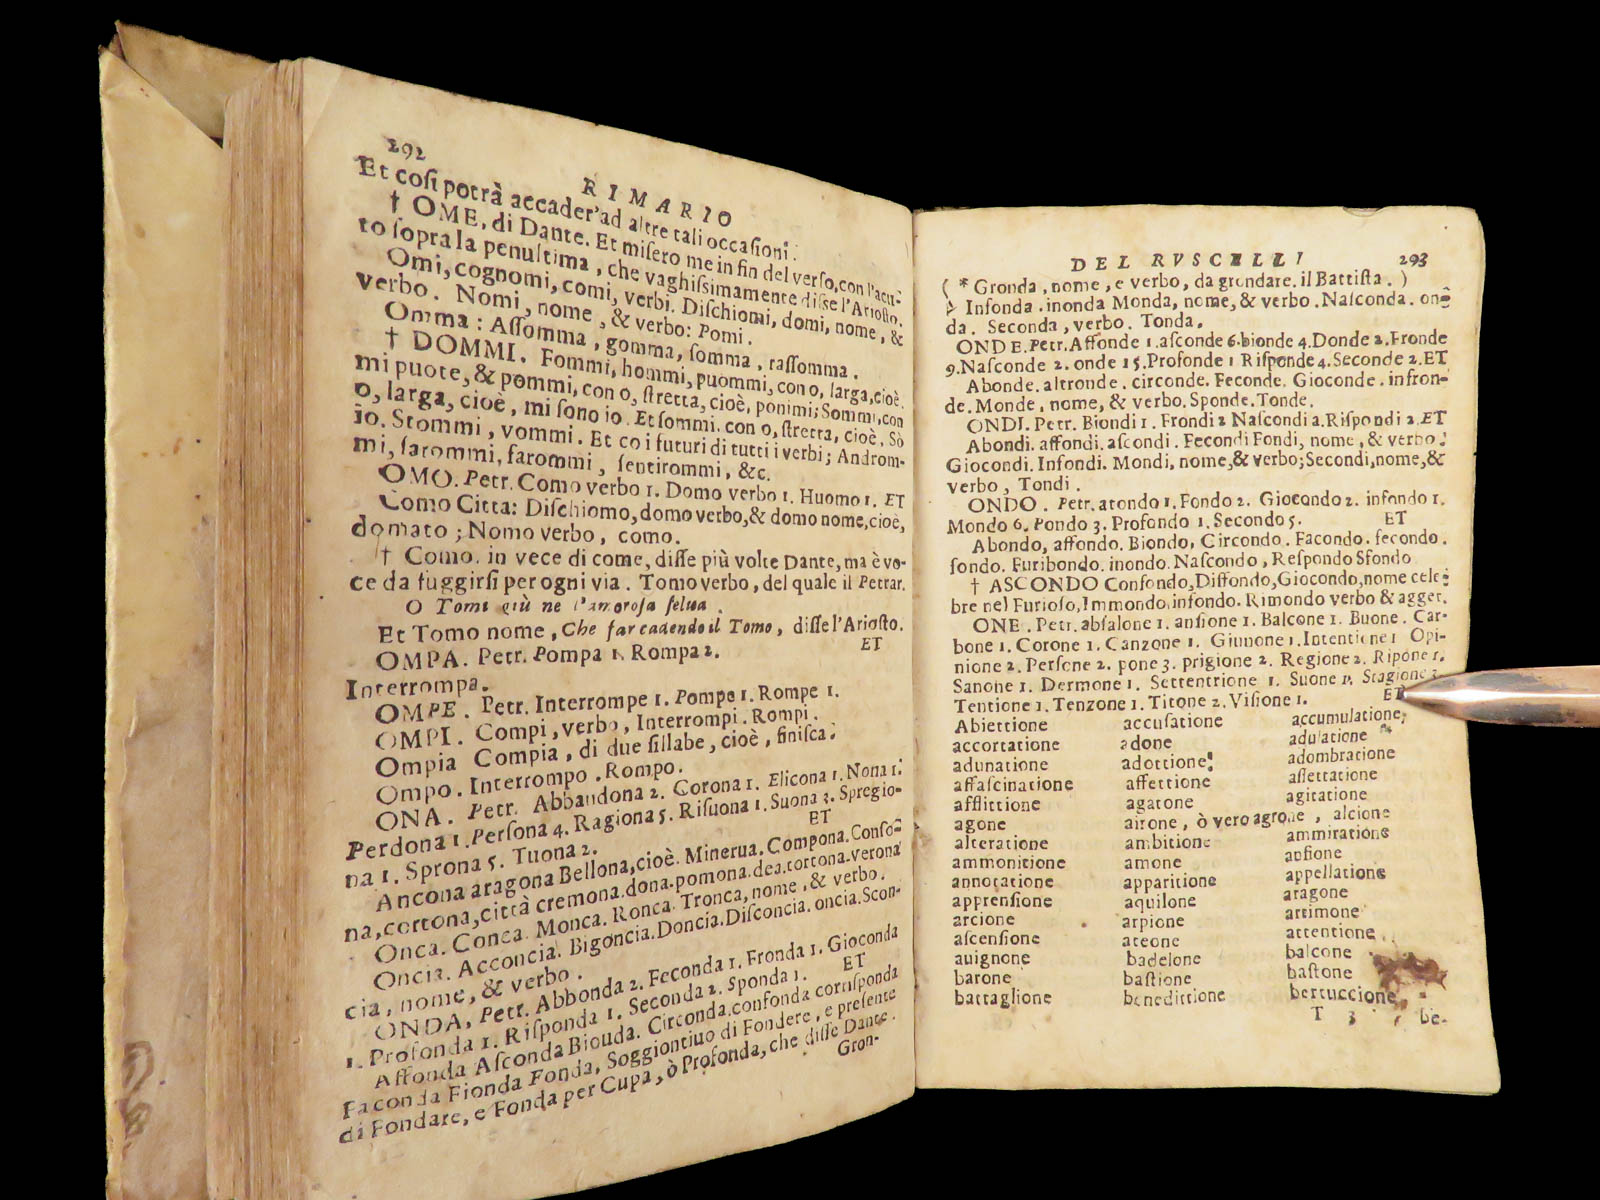 292
RIMARIO
Et coſi potrà accader'ad altre tali occaſioni.
† OME, di Dante. Et miſero me in fin del verſo, con l'acu-
to ſopra la penultima, che vaghiſsimamente diſſe l'Arioſto.
Omi, cognomi, comi, verbi. Diſchiomi, domi, nome, &
verbo. Nomi, nome, & verbo: Pomi.
Omma: Aſſomma, gomma, ſomma, raſſomma.
† DOMMI. Fommi, hommi, puommi, con o, larga, cioè
mi puote, & pommi, con o, ſtretta, cioè, ponimi; Sommi, con
o, larga, cioè, mi ſono io. Et ſommi. con o, ſtretta, cioè, Sò
io. Stommi, vommi. Et co i futuri di tutti i verbi; Androm-
mi, ſarommi, farommi, ſentirommi, &c.
OMO. Petr. Como verbo 1. Domo verbo 1. Huomo 1. ET
Como Citta: Diſchiomo, domo verbo, & domo nome, cioè,
domato; Nomo verbo, como.
† Como. in vece di come, diſſe più volte Dante, ma è vo-
ce da fuggirſi per ogni via. Tomo verbo, del quale il Petrar.
O Tomi giù ne l'amoroſa ſelua.
Et Tomo nome, Che far cadendo il Tomo, diſſe l'Arioſto.
OMPA. Petr. Pompa 1. Rompa 2. ET
Interrompa.
OMPE. Petr. Interrompe 1. Pompe 1. Rompe 1.
OMPI. Compi, verbo, Interrompi. Rompi.
Ompia Compia, di due ſillabe, cioè, finiſca.
Ompo. Interrompo. Rompo.
ONA. Petr. Abbandona 2. Corona 1. Elicona 1. Nona 1.
Perdona 1. Perſona 4. Ragiona 5. Riſuona 1. Suona 3. Spregio-
na 1. Sprona 5. Tuona 2. ET
Ancona aragona Bellona, cioè. Minerua. Compona. Conſo-
na, cortona, città cremona. dona. pomona. dea. tortona. verona
Onca. Conca. Monca. Ronca. Tronca, nome, & verbo.
Oncia. Acconcia. Bigoncia. Doncia. Diſconcia. oncia. Scon-
cia, nome, & verbo.
ONDA, Petr. Abbonda 2. Feconda 1. Fronda 1. Gioconda
1. Profonda 1. Riſponda 1. Seconda 2. Sponda 1. ET
Affonda Aſconda Bionda. Circonda. confonda corriſponda
Faconda Fionda Fonda, Soggiontiuo di Fondere, e preſente
di Fondare, e Fonda per Cupa, ò Profonda, che diſſe Dante.
Gron-
DEL RVSCELLI 293
(* Gronda, nome, e verbo, da grondare. il Battiſta.)
Infonda. inonda Monda, nome, & verbo. Naſconda. on-
da. Seconda, verbo. Tonda.
ONDE. Petr. Affonde 1. aſconde 6. bionde 4. Donde 2. Fronde
9. Naſconde 2. onde 15. Profonde 1 Riſponde 4. Seconde 2. ET
Abonde. altronde. circonde. Feconde. Gioconde. infron-
de. Monde, nome, & verbo. Sponde. Tonde.
ONDI. Petr. Biondi 1. Frondi 2 Naſcondi 2. Riſpondi 2. ET
Abondi. affondi. aſcondi. Fecondi Fondi, nome, & verbo.
Giocondi. Infondi. Mondi, nome, & verbo; Secondi, nome, &
verbo, Tondi.
ONDO. Petr. atondo 1. Fondo 2. Giocondo 2. infondo 1.
Mondo 6. Pondo 3. Profondo 1. Secondo 5. ET
Abondo, affondo. Biondo, Circondo. Facondo. fecondo.
fondo. Furibondo. inondo. Naſcondo, Reſpondo Sfondo
† ASCONDO Confondo, Diffondo, Giocondo, nome cele-
bre nel Furioſo, Immondo, infondo. Rimondo verbo & agget.
ONE. Petr. abſalone 1. anſione 1. Balcone 1. Buone. Car-
bone 1. Corone 1. Canzone 1. Giunone 1. Intentione 1 Opi-
nione 2. Perſone 2. pone 3. prigione 2. Regione 2. Ripone 1.
Sanone 1. Dermone 1. Settentrione 1. Suone 1. Stagione 3.
Tentione 1. Tenzone 1. Titone 2. Viſione 1. ET
Abiettione accuſatione accumulatione,
accortatione adone adulatione
adunatione adottione adombratione
affaſcinatione affettione aſſettatione
afflittione agatone agitatione
agone airone, ò vero agrone, alcione
alteratione ambitione ammiratione
ammonitione amone anſione
annotatione apparitione appellatione
apprenſione aquilone aragone
arcione arpione artimone
aſcenſione ateone attentione
auignone badelone balcone
barone baſtione baſtone
battaglione benedittione bertuccione
T 3 be-